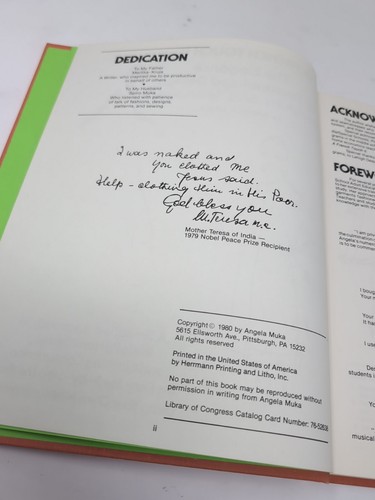 DEDICATION
To My Father
a writer, who inspired me to be productive
in behalf of others
To My Husband
Who listened with patience
of lots of fashions, designs,
patterns, and sewing
I was naked and
you clothed Me
Jesus said.
Help - clothing Him in His Poor.
God bless you
M. Teresa m.c.
Mother Teresa of India —
1979 Nobel Peace Prize Recipient
Copyright © 1980 by Angela Muka
5615 Ellsworth Ave., Pittsburgh, PA 15232
All rights reserved
Printed in the United States of America
by Herrmann Printing and Litho, Inc.
No part of this book may be reproduced without
permission in writing from Angela Muka
Library of Congress Catalog Card Number:
ii
ACKNOW
FOREW
I boug
Your
It ha
I use
students i
Yo
musical